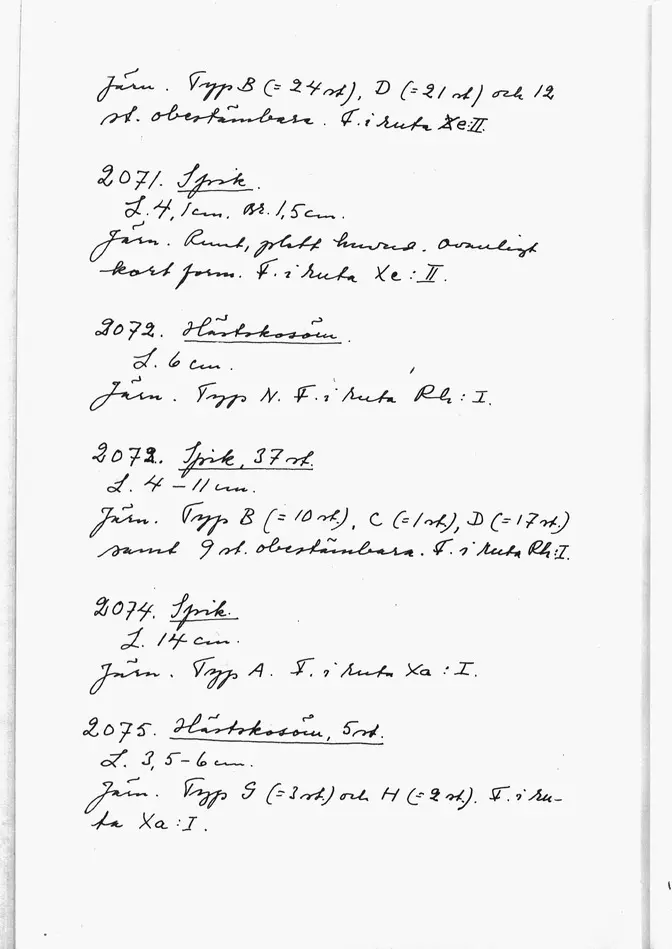 Järn. Typ B (= 24 st), D (= 21 st) och 12
st. obestämbara. F. i ruta Xe:II.
2071. Spik.
L. 4,1 cm. Br. 1,5 cm.
Järn. Runt, platt huvud. Ovanligt
kort form. F. i ruta Xe : II.
2072. Hästskosöm.
L. 6 cm.
Järn. Typ N. F. i ruta Rh : I.
2073. Spik, 37 st.
L. 4 – 11 cm.
Järn. Typ B (= 10 st.), C (= 1 st), D (= 17 st.)
samt 9 st. obestämbara. F. i ruta Rh:I.
2074. Spik.
L. 14 cm.
Järn. Typ A. F. i ruta Xa : I.
2075. Hästskosöm, 5 st.
L. 3,5 – 6 cm.
Järn. Typ G (= 3 st.) och H (= 2 st.). F. i ru-
ta Xa : I.